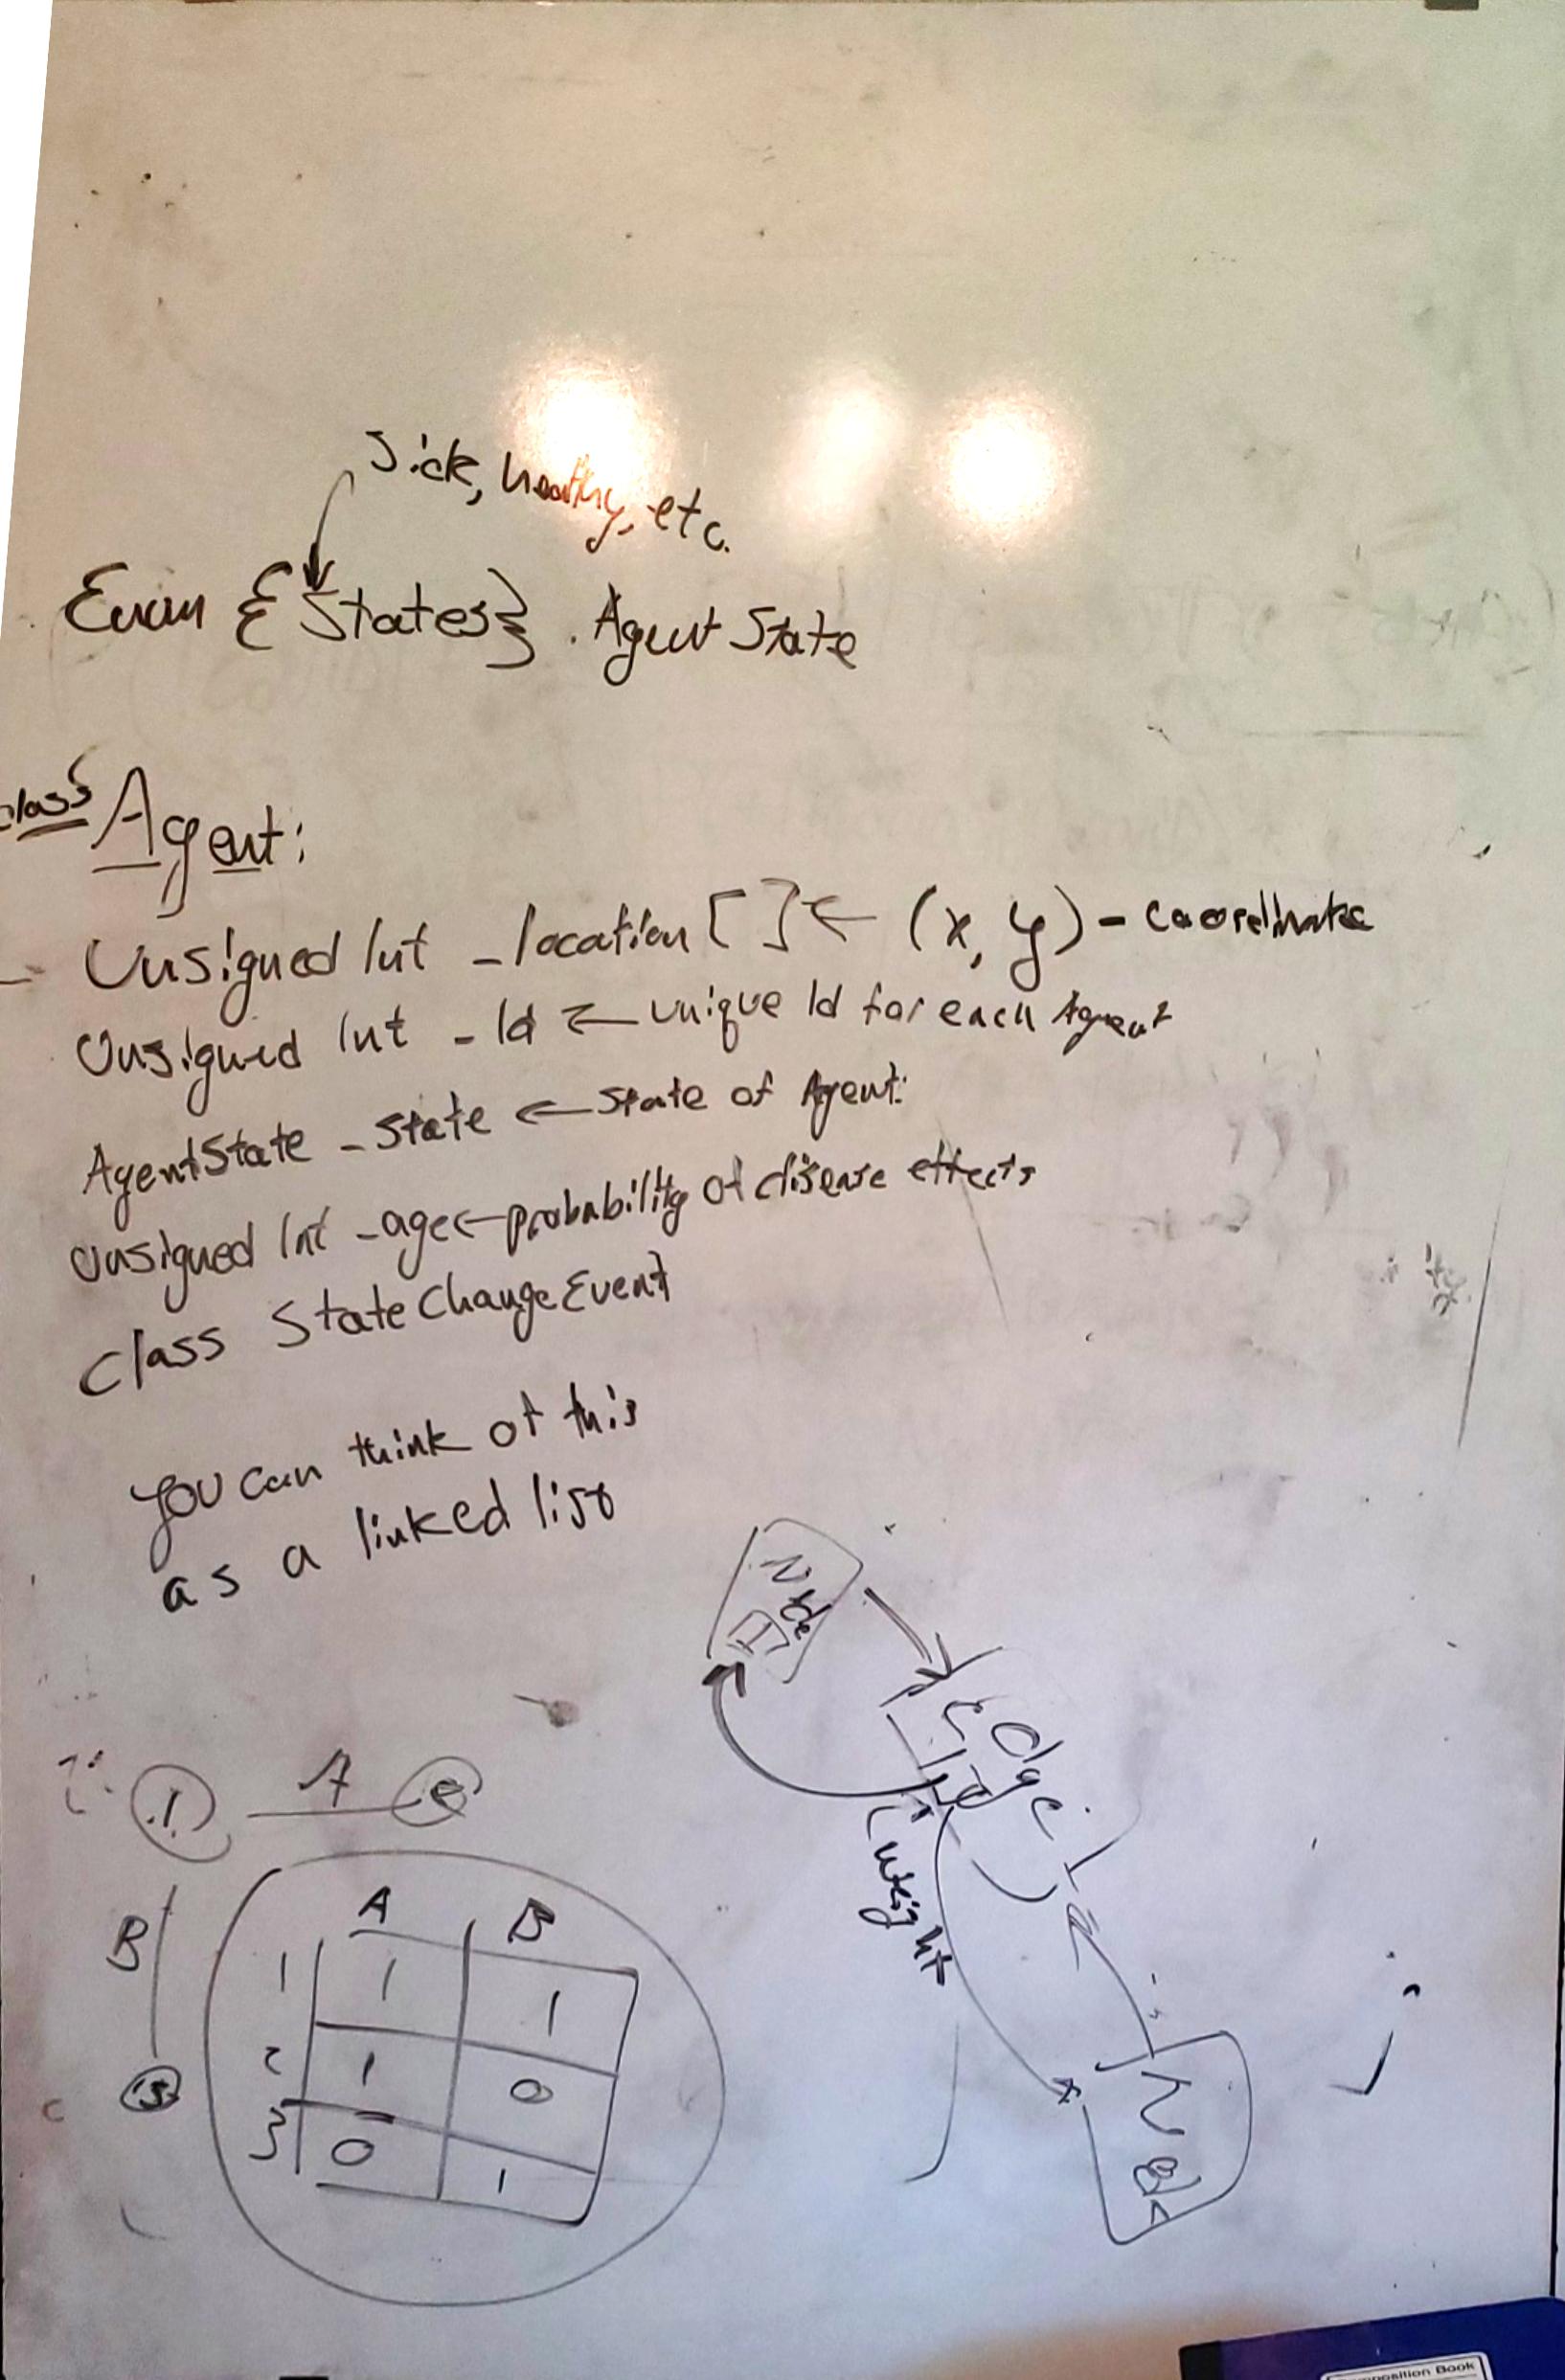 Sick, healthy, etc.
Enum {States} AgentState
class Agent:
Unsigned Int _location[] ← (x, y) - coordinate
Unsigned Int _Id ← unique Id for each Agent
AgentState _state ← state of Agent
Unsigned Int _age ← probability of disease effects
class StateChangeEvent
you can think of this
as a linked list
Node
Edge
weight
Node
1 A
B
A B
1 1 1
2 1 0
3 0 1
Composition Book